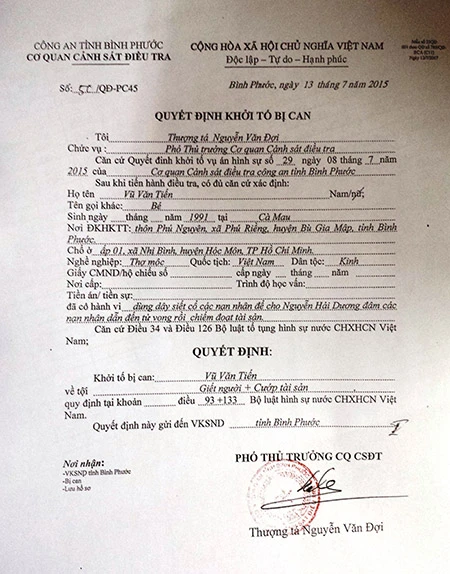 CÔNG AN TỈNH BÌNH PHƯỚC
CƠ QUAN CẢNH SÁT ĐIỀU TRA
CỘNG HÒA XÃ HỘI CHỦ NGHĨA VIỆT NAM
Độc lập - Tự do - Hạnh phúc
Số: /QĐ-PC45
Bình Phước, ngày 13 tháng 7 năm 2015
QUYẾT ĐỊNH KHỞI TỐ BỊ CAN
Tôi Thượng tá Nguyễn Văn Đợi
Chức vụ : Phó Thủ trưởng Cơ quan Cảnh sát điều tra
Căn cứ Quyết đinh khởi tố vụ án hình sự số 29 ngày 08 tháng 7 năm
2015 của Cơ quan Cảnh sát điều tra công an tỉnh Bình Phước
Sau khi tiến hành điều tra, có đủ căn cứ xác định:
Họ tên Vũ Văn Tiến Nam/nữ:
Tên gọi khác: Bé
Sinh ngày tháng năm 1991 tại Cà Mau
Nơi ĐKHKTT: thôn Phú Nguyên, xã Phú Riềng, huyện Bù Gia Mập, tỉnh Bình
Phước.
Chỗ ở ấp 01, xã Nhị Bình, huyện Hóc Môn, TP Hồ Chí Minh.
Nghề nghiệp: Thợ mộc Quốc tịch: Việt Nam Dân tộc: Kinh
Giấy CMND/hộ chiếu số cấp ngày tháng năm
Nơi cấp: Trình độ học vấn:
Tiền án/ tiền sự:
đã có hành vi dùng dây siết cổ các nạn nhân để cho Nguyễn Hải Dương đâm các
nạn nhân dẫn đến tử vong rồi chiếm đoạt tài sản.
Căn cứ Điều 34 và Điều 126 Bộ luật tố tụng hình sự nước CHXHCN Việt
Nam;
QUYẾT ĐỊNH:
Khởi tố bị can: Vũ Văn Tiến
về tội Giết người + Cướp tài sản
quy định tại khoản điều 93 +133 Bộ luật hình sự nước CHXHCN Việt
Nam.
Quyết định này gửi đến VKSND tỉnh Bình Phước
Nơi nhận:
-VKSND tỉnh Bình Phước
-Bị can
-Lưu hồ sơ
PHÓ THỦ TRƯỞNG CQ CSĐT
Thượng tá Nguyễn Văn Đợi